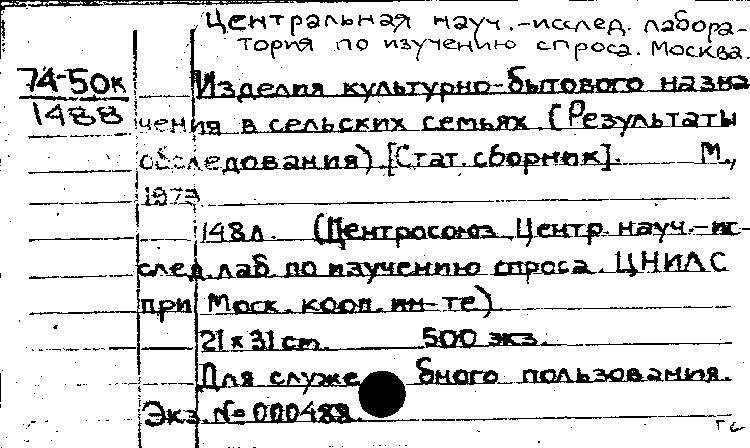 Центральная науч.-исслед. лабора-
тория по изучению спроса. Москва.
74-50к
1488
Изделия культурно-бытового назна
чения в сельских семьях. (Результаты
обследования) [Стат. сборник]. М.,
1973
148л. (Центросоюз. Центр. науч.-ис-
след. лаб по изучению спроса. ЦНИЛС
при Моск. кооп. ин-те)
21 x 31 cm. 500 экз.
Для служебного пользования.
Экз. № 000488.